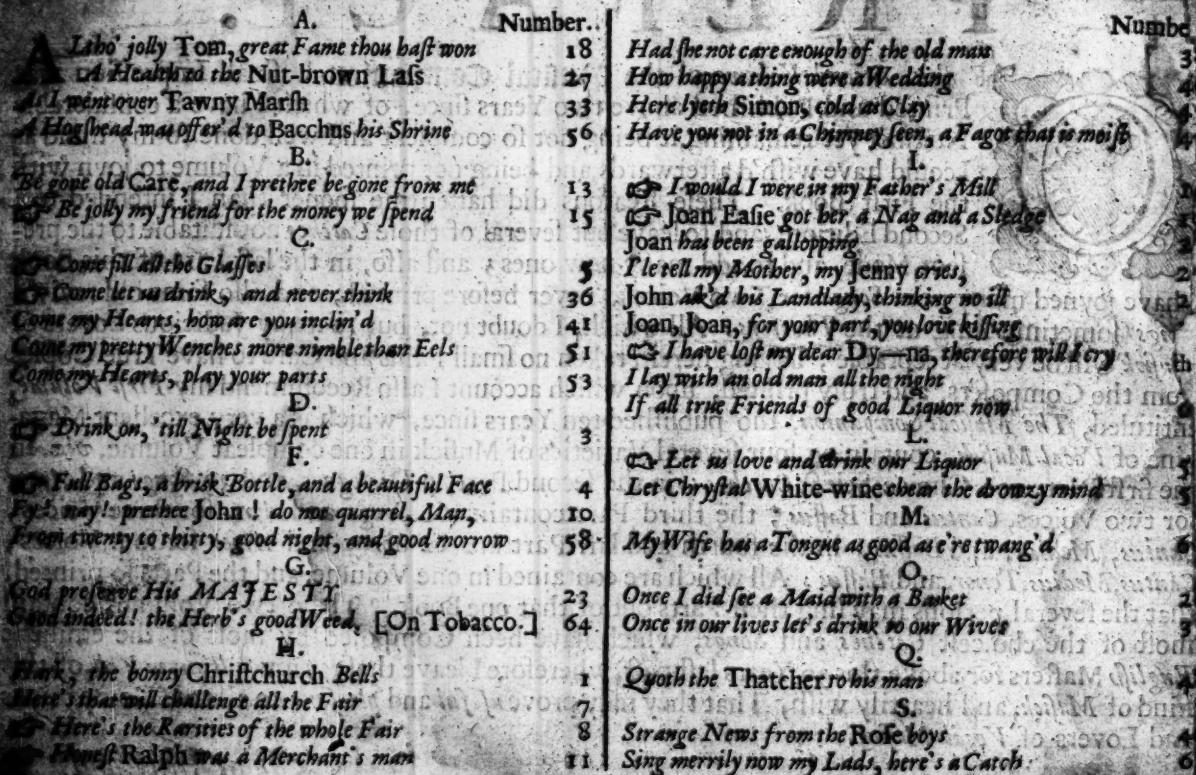 A. Number.
ALtho' jolly Tom, great Fame thou haſt won 18
A Health to the Nut-brown Laſs 27
As I went over Tawny Marſh 33
A Hogſhead was offer'd to Bacchus his Shrine 56
B.
Be gone old Care, and I prethee be gone from me 13
☞ Be jolly my friend for the money we ſpend 15
C.
☞ Come fill all the Glaſſes 5
☞ Come let us drink, and never think 36
Come my Hearts, how are you inclin'd 41
Come my pretty Wenches more nimble than Eels 51
Come my Hearts, play your parts 53
D.
☞ Drink on, 'till Night be ſpent 3
F.
☞ Full Bags, a brisk Bottle, and a beautiful Face 4
Fy! nay! prethee John! do not quarrel, Man, 10
From twenty to thirty, good night, and good morrow 58
G.
God preſerve His MAJESTY 23
Good indeed! the Herb's good Weed, [On Tobacco.] 64
H.
Hark, the bonny Chriſtchurch Bells 1
Here's that will challenge all the Fair 7
☞ Here's the Rarities of the whole Fair 8
☞ Honeſt Ralph was a Merchant's man 11
Numbe
Had ſhe not care enough of the old man 3
How happy a thing were a Wedding 4
Here lyeth Simon, cold as Clay 4
Have you not in a Chimney ſeen, a Fagot that is moiſt 4
I.
☞ I would I were in my Father's Mill 1
☞ Joan Eaſie got her a Nag and a Sledge
Joan has been gallopping 2
I'le tell my Mother, my Jenny cries, 2
John ask'd his Landlady, thinking no ill 2
Joan, Joan, for your part, you love kiſſing
☞ I have loſt my dear Dy—na, therefore will I cry
I lay with an old man all the night
If all true Friends of good Liquor now 6
L.
☞ Let us love and drink our Liquor 5
Let Chryſtal White-wine chear the drowzy mind 5
M.
My Wife has a Tongue as good as e're twang'd 6
O.
Once I did ſee a Maid with a Basket 2
Once in our lives let's drink to our Wives 3
Q.
Quoth the Thatcher to his man 4
S.
Strange News from the Roſe boys 4
Sing merrily now my Lads, here's a Catch 6